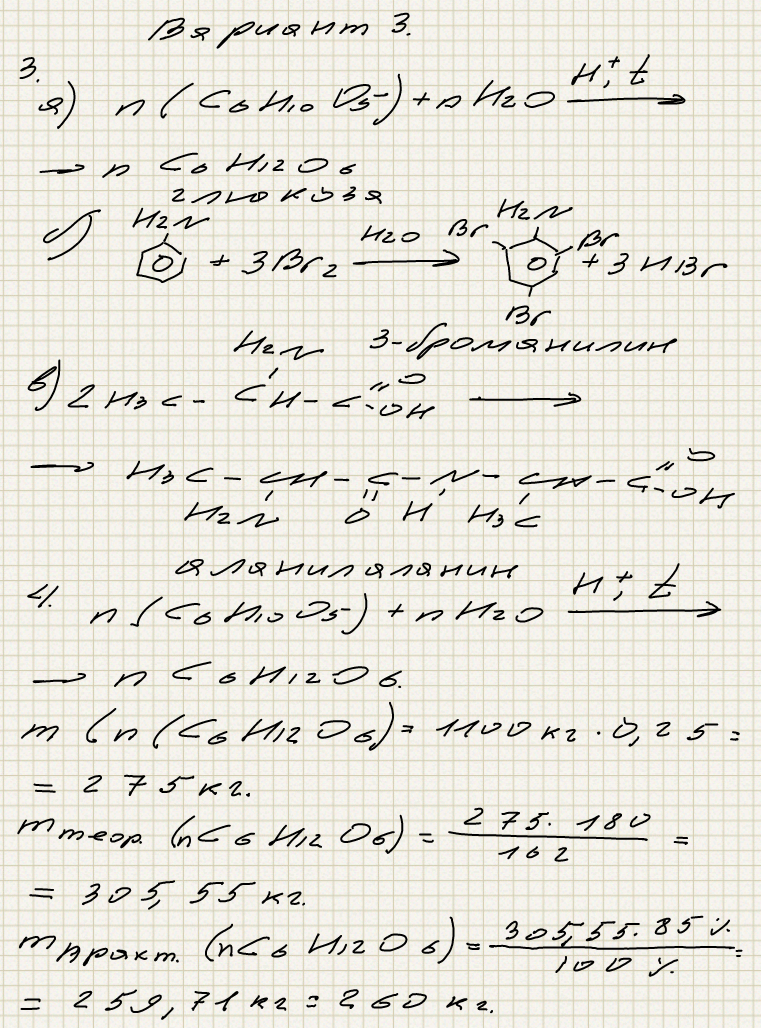 Вариант 3.
3.
а) n(C6H10O5) + nH2O H+, t →
→ n C6H12O6
глюкоза
б) H2N + 3Br2 H2O → H2N Br Br Br + 3HBr
3-броманилин
в) 2 H3C - CH(H2N) - C(=O)-OH →
→ H3C - CH(H2N) - C(=O) - N(H) - CH(H3C) - C(=O)-OH
аланилаланин
4. n(C6H10O5) + nH2O H+, t →
→ n C6H12O6.
m(n(C6H12O6) = 1100 кг · 0,25 =
= 275 кг.
m теор. (nC6H12O6) = 275 · 180 / 162 =
= 305,55 кг.
m практ. (nC6H12O6) = 305,55 · 85 % / 100 % =
= 259,71 кг = 260 кг.